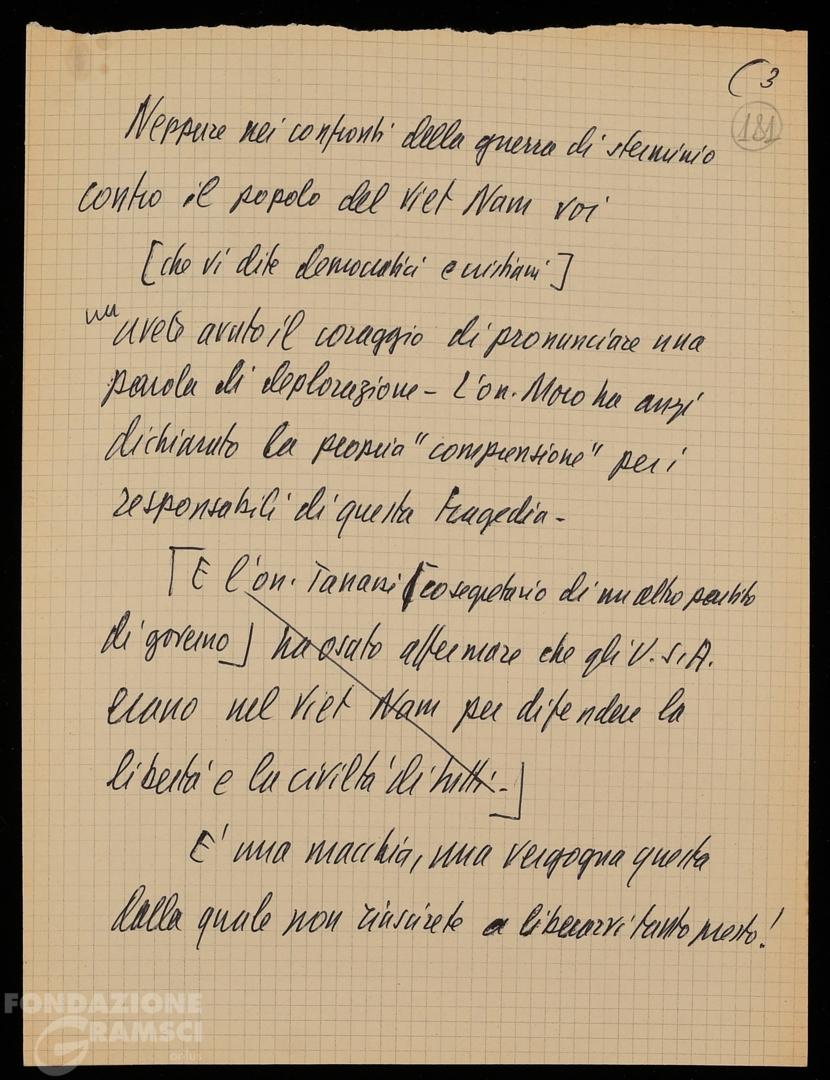 ( 3
181
Neppure nei confronti della guerra di sterminio
contro il popolo del Viet Nam voi
[che vi dite democratici e cristiani]
avete avuto il coraggio di pronunciare una
parola di deplorazione - L'on. Moro ha anzi
dichiarato la propria "comprensione" per i
responsabili di questa tragedia -
[E l'on. Tanassi [cosegretario di un altro partito
di governo] ha osato affermare che gli U.S.A.
erano nel Viet Nam per difendere la
libertà e la civiltà di tutti -]
E' una macchia, una vergogna questa
dalla quale non riuscirete a liberarvi tanto presto!
FONDAZIONE
GRAMSCI
onlus